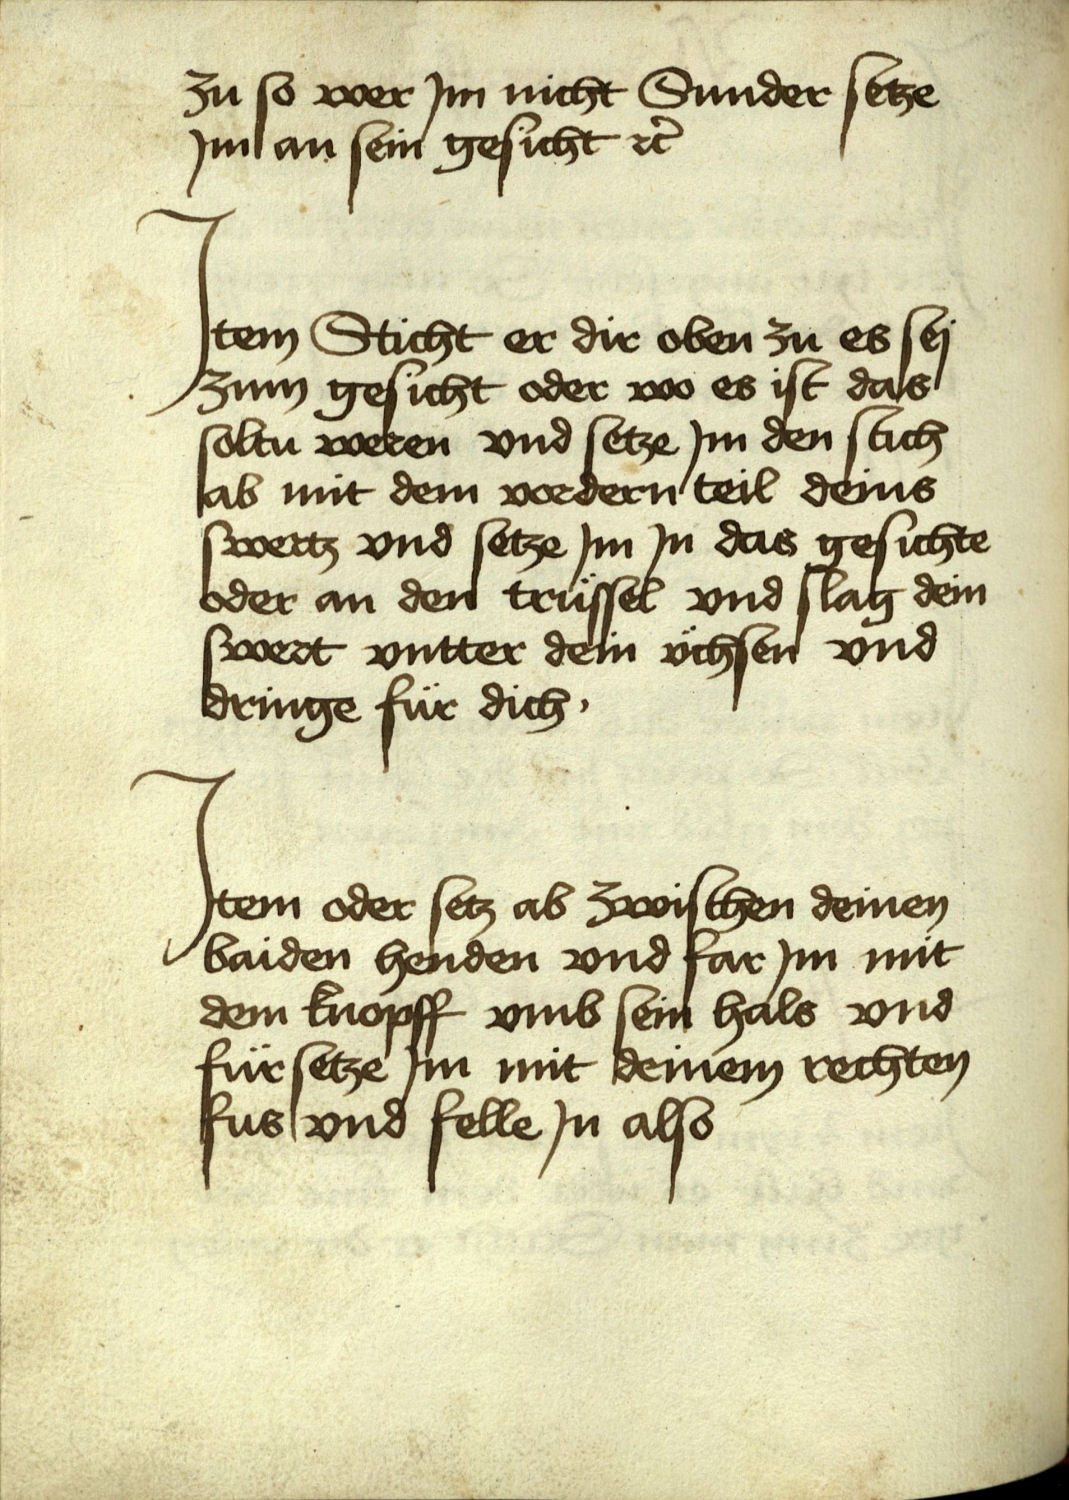 zu so wer Jm nicht Sunder setze
Jm an sein gesicht ꝛc̃
Jtem Sticht er dir oben zu es sej
zum gesicht oder wo es ist das
soltu weren vnd setze Jm den stich
ab mit dem vordern teil deins
swertz vnd setze Jm Jn das gesichte
oder an den trüssel vnd slag dein
swert vntter dein üchsen vnd
dringe für dich ·
Jtem oder setz ab zwischen deinen
baiden henden vnd far Jm mit
dem knopff vmb sein hals vnd
für setze Jm mit deinem rechten
fus vnd felle Jn also